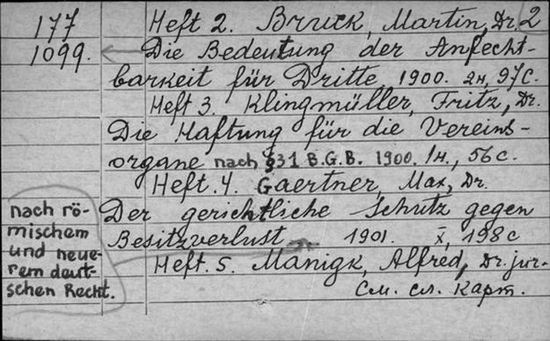 177
1099.
Heft 2. Bruck, Martin, Dr. 2
Die Bedeutung der Anfecht-
barkeit für Dritte, 1900. 24, 97 C.
Heft 3. Klingmüller, Fritz, Dr.
Die Haftung für die Vereins-
organe nach §31 B.G.B. 1900. 14., 56 c.
Heft. 4. Gaertner, Max, Dr.
Der gerichtliche Schutz gegen
Besitzverlust 1901. X, 198 c
nach rö-
mischem
und neue-
rem deut-
schen Recht.
Heft. 5. Manigk, Alfred, Dr. jur.
См. сл. карт.